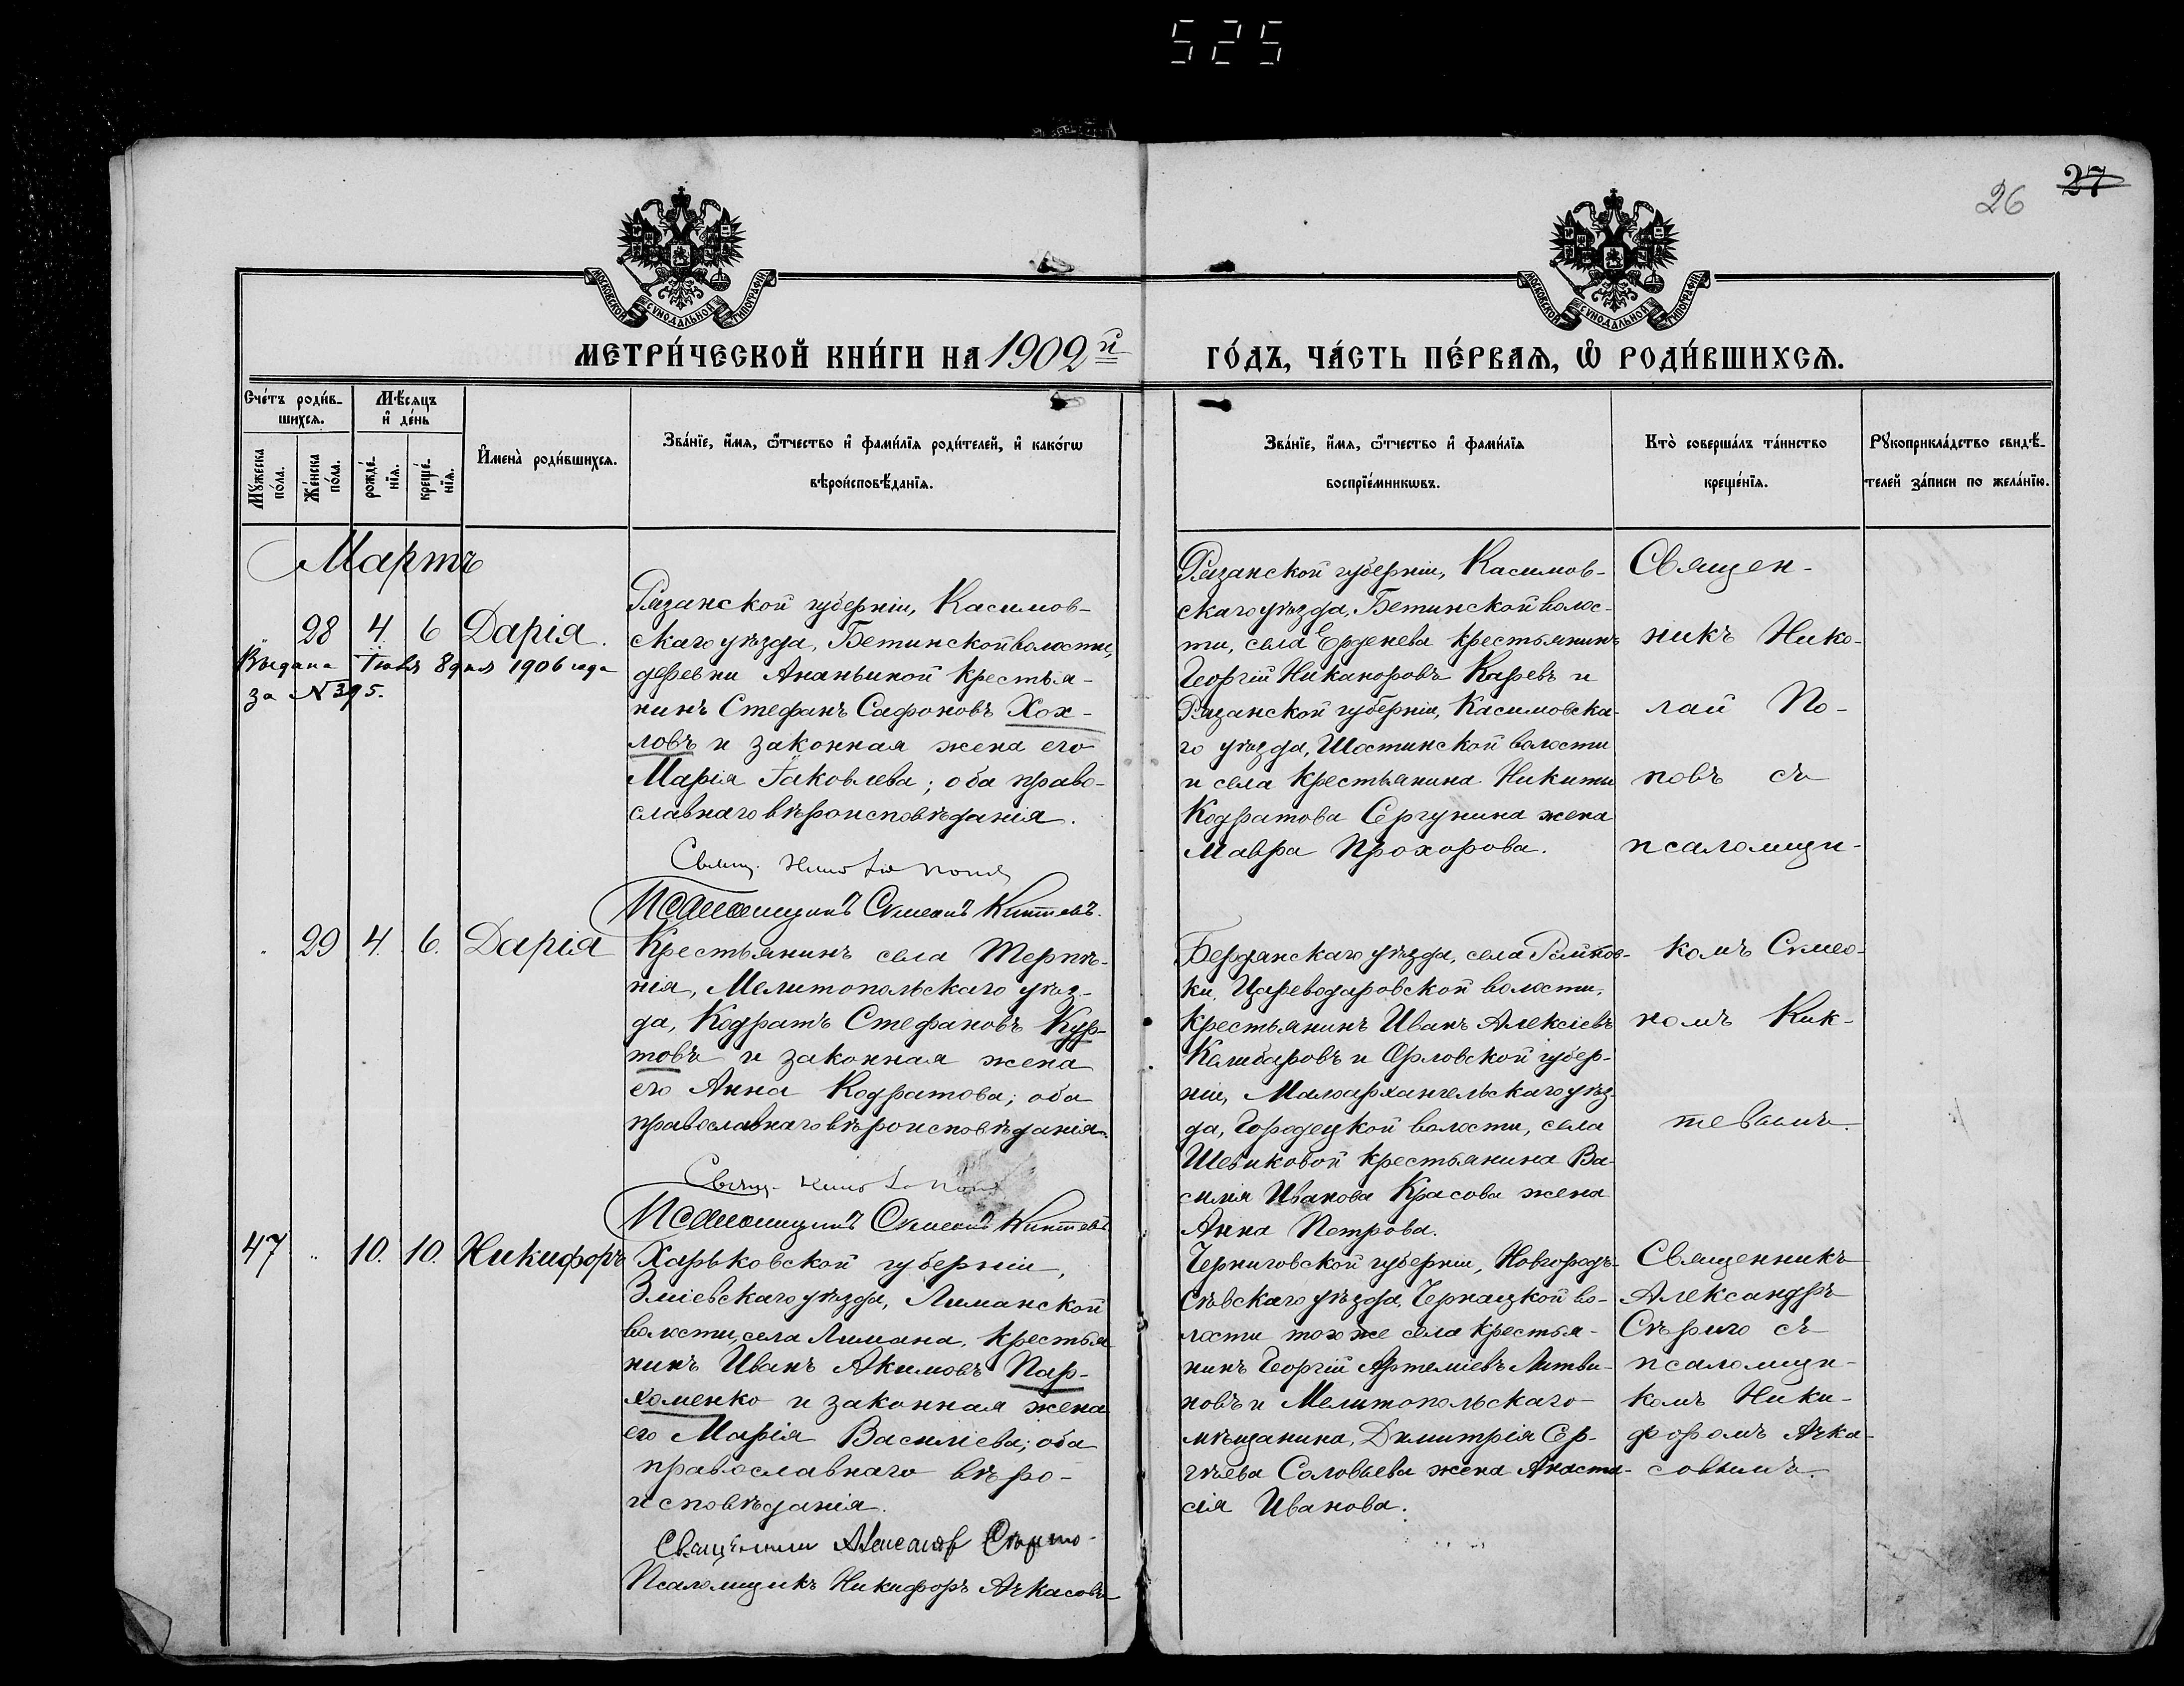 525
26 27
МОСКОВСКОЙ СѴНОДАЛЬНОЙ ТИПОГРАФІИ
МОСКОВСКОЙ СѴНОДАЛЬНОЙ ТИПОГРАФІИ
МЕТРИ́ЧЕСКОЙ КНИ́ГИ НА 1902й
ГО́ДЪ, ЧА́СТЬ ПЕ́РВАѦ, Ѡ҆ РОДИ́ВШИХСѦ.
Сче́тъ роди́в-
шихсѧ.
Мѣ́сѧцъ
и҆ де́нь
Мꙋ́жеска
по́ла.
Же́нска
по́ла.
рожде́-
нїѧ.
креще́-
нїѧ.
И҆мена̀ роди́вшихсѧ.
Зва́нїе, и҆́мѧ, ѻ҆́тчество и҆ фами́лїѧ роди́телей, и҆ како́гѡ
вѣроисповѣ́данїѧ.
Зва́нїе, и҆́мѧ, ѻ҆́тчество и҆ фами́лїѧ
воспрїе́мникѡвъ.
Кто̀ соверша́лъ та́инство
креще́нїѧ.
Рꙋкоприкла́дство свидѣ́-
телей за́писи по жела́нїю.
Мартъ
28 4. 6 Дарія.
Выдана Іюля 8 дня 1906 года
за № 395.
Рязанской губерніи, Касимов-
скаго уѣзда, Бетинской волости,
деревни Ананьиной крестья-
нинъ Стефанъ Сафоновъ Хох-
ловъ и законная жена его
Марія Іаковлева; оба право-
славнаго вѣроисповѣданія.
Свящ. Попов
Псаломщикъ Симеонъ Киктевъ.
Рязанской губерніи, Касимов-
скаго уѣзда, Бетинской волос-
ти, села Ерденева крестьянинъ
Георгій Никаноровъ Каревъ и
Рязанской губерніи, Касимовска-
го уѣзда, Шостинской волости
и села крестьянина Никиты
Кодратова Сергунина жена
Мавра Прохорова.
Священ-
никъ Нико-
лай По-
повъ съ
псаломщи-
комъ Симео-
номъ Кик-
тевымъ.
29 4. 6. Дарія
Крестьянинъ села Терпѣ-
нія, Мелитопольскаго уѣз-
да, Кодратъ Стефановъ Кур-
товъ и законная жена
его Анна Кодратова; оба
православнаго вѣроисповѣданія.
Свящ. Попов
Псаломщикъ Симеонъ Киктевъ
Бердянскаго уѣзда, села Райнов-
ки, Цареводаровской волости,
крестьянинъ Иванъ Алексіевъ
Калибаровъ и Орловской губер-
ніи, Малоархангельскаго уѣз-
да, Городецкой волости, села
Шевиковой крестьянина Ва-
силія Иванова Красова жена
Анна Петрова.
47 10. 10. Никифоръ
Харьковской губерніи,
Зміевскаго уѣзда, Лиманской
волости, села Лимана, крестья
нинъ Иванъ Акимовъ Пар-
хоменко и законная жена
его Марія Василіева; оба
православнаго вѣро-
исповѣданія.
Священникъ Александръ Сѣрыго
Псаломщикъ Никифоръ Ачкасовъ
Черниговской губерніи, Новгородъ-
Сѣвскаго уѣзда, Чернацкой во-
лости того же села крестья-
нинъ Георгій Артеміевъ Литви-
новъ и Мелитопольскаго
мѣщанина, Димитрія Сер-
гѣева Соловьева жена Анаста-
сія Иванова.
Священникъ
Александръ
Сѣрыго съ
псаломщи-
комъ Ники-
форомъ Ачка-
совымъ.